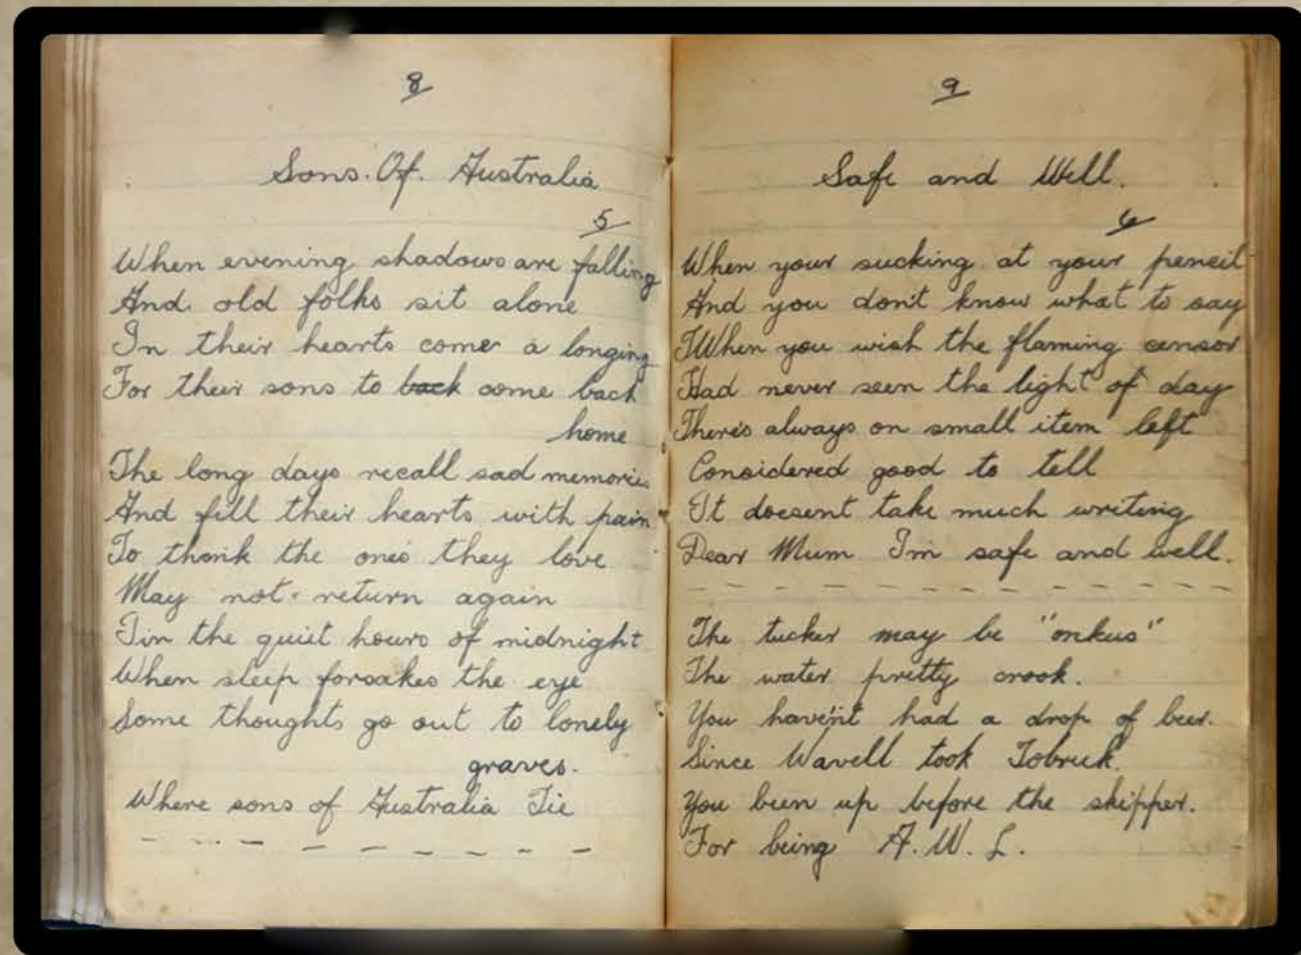 8
Sons. Of. Australia
5
When evening shadows are falling
And old folks sit alone
In their hearts come a longing
For their sons to back come back
home
The long days recall sad memories
And fill their hearts with pain
To think the one's they love
May not return again
Tin the quiet hours of midnight
When sleep forsakes the eye
Some thoughts go out to lonely
graves.
Where sons of Australia Tie
9
Safe and Well.
6
When your sucking at your pencil
And you don't know what to say
When you wish the flaming censor
Had never seen the light of day
There's always on small item left
Considered good to tell
It doesent take much writing
Dear Mum I'm safe and well.
The tucker may be "onkus"
The water pretty crook.
You haven't had a drop of beer.
Since Wavell took Tobruk.
You been up before the skipper.
For being A.W.L.